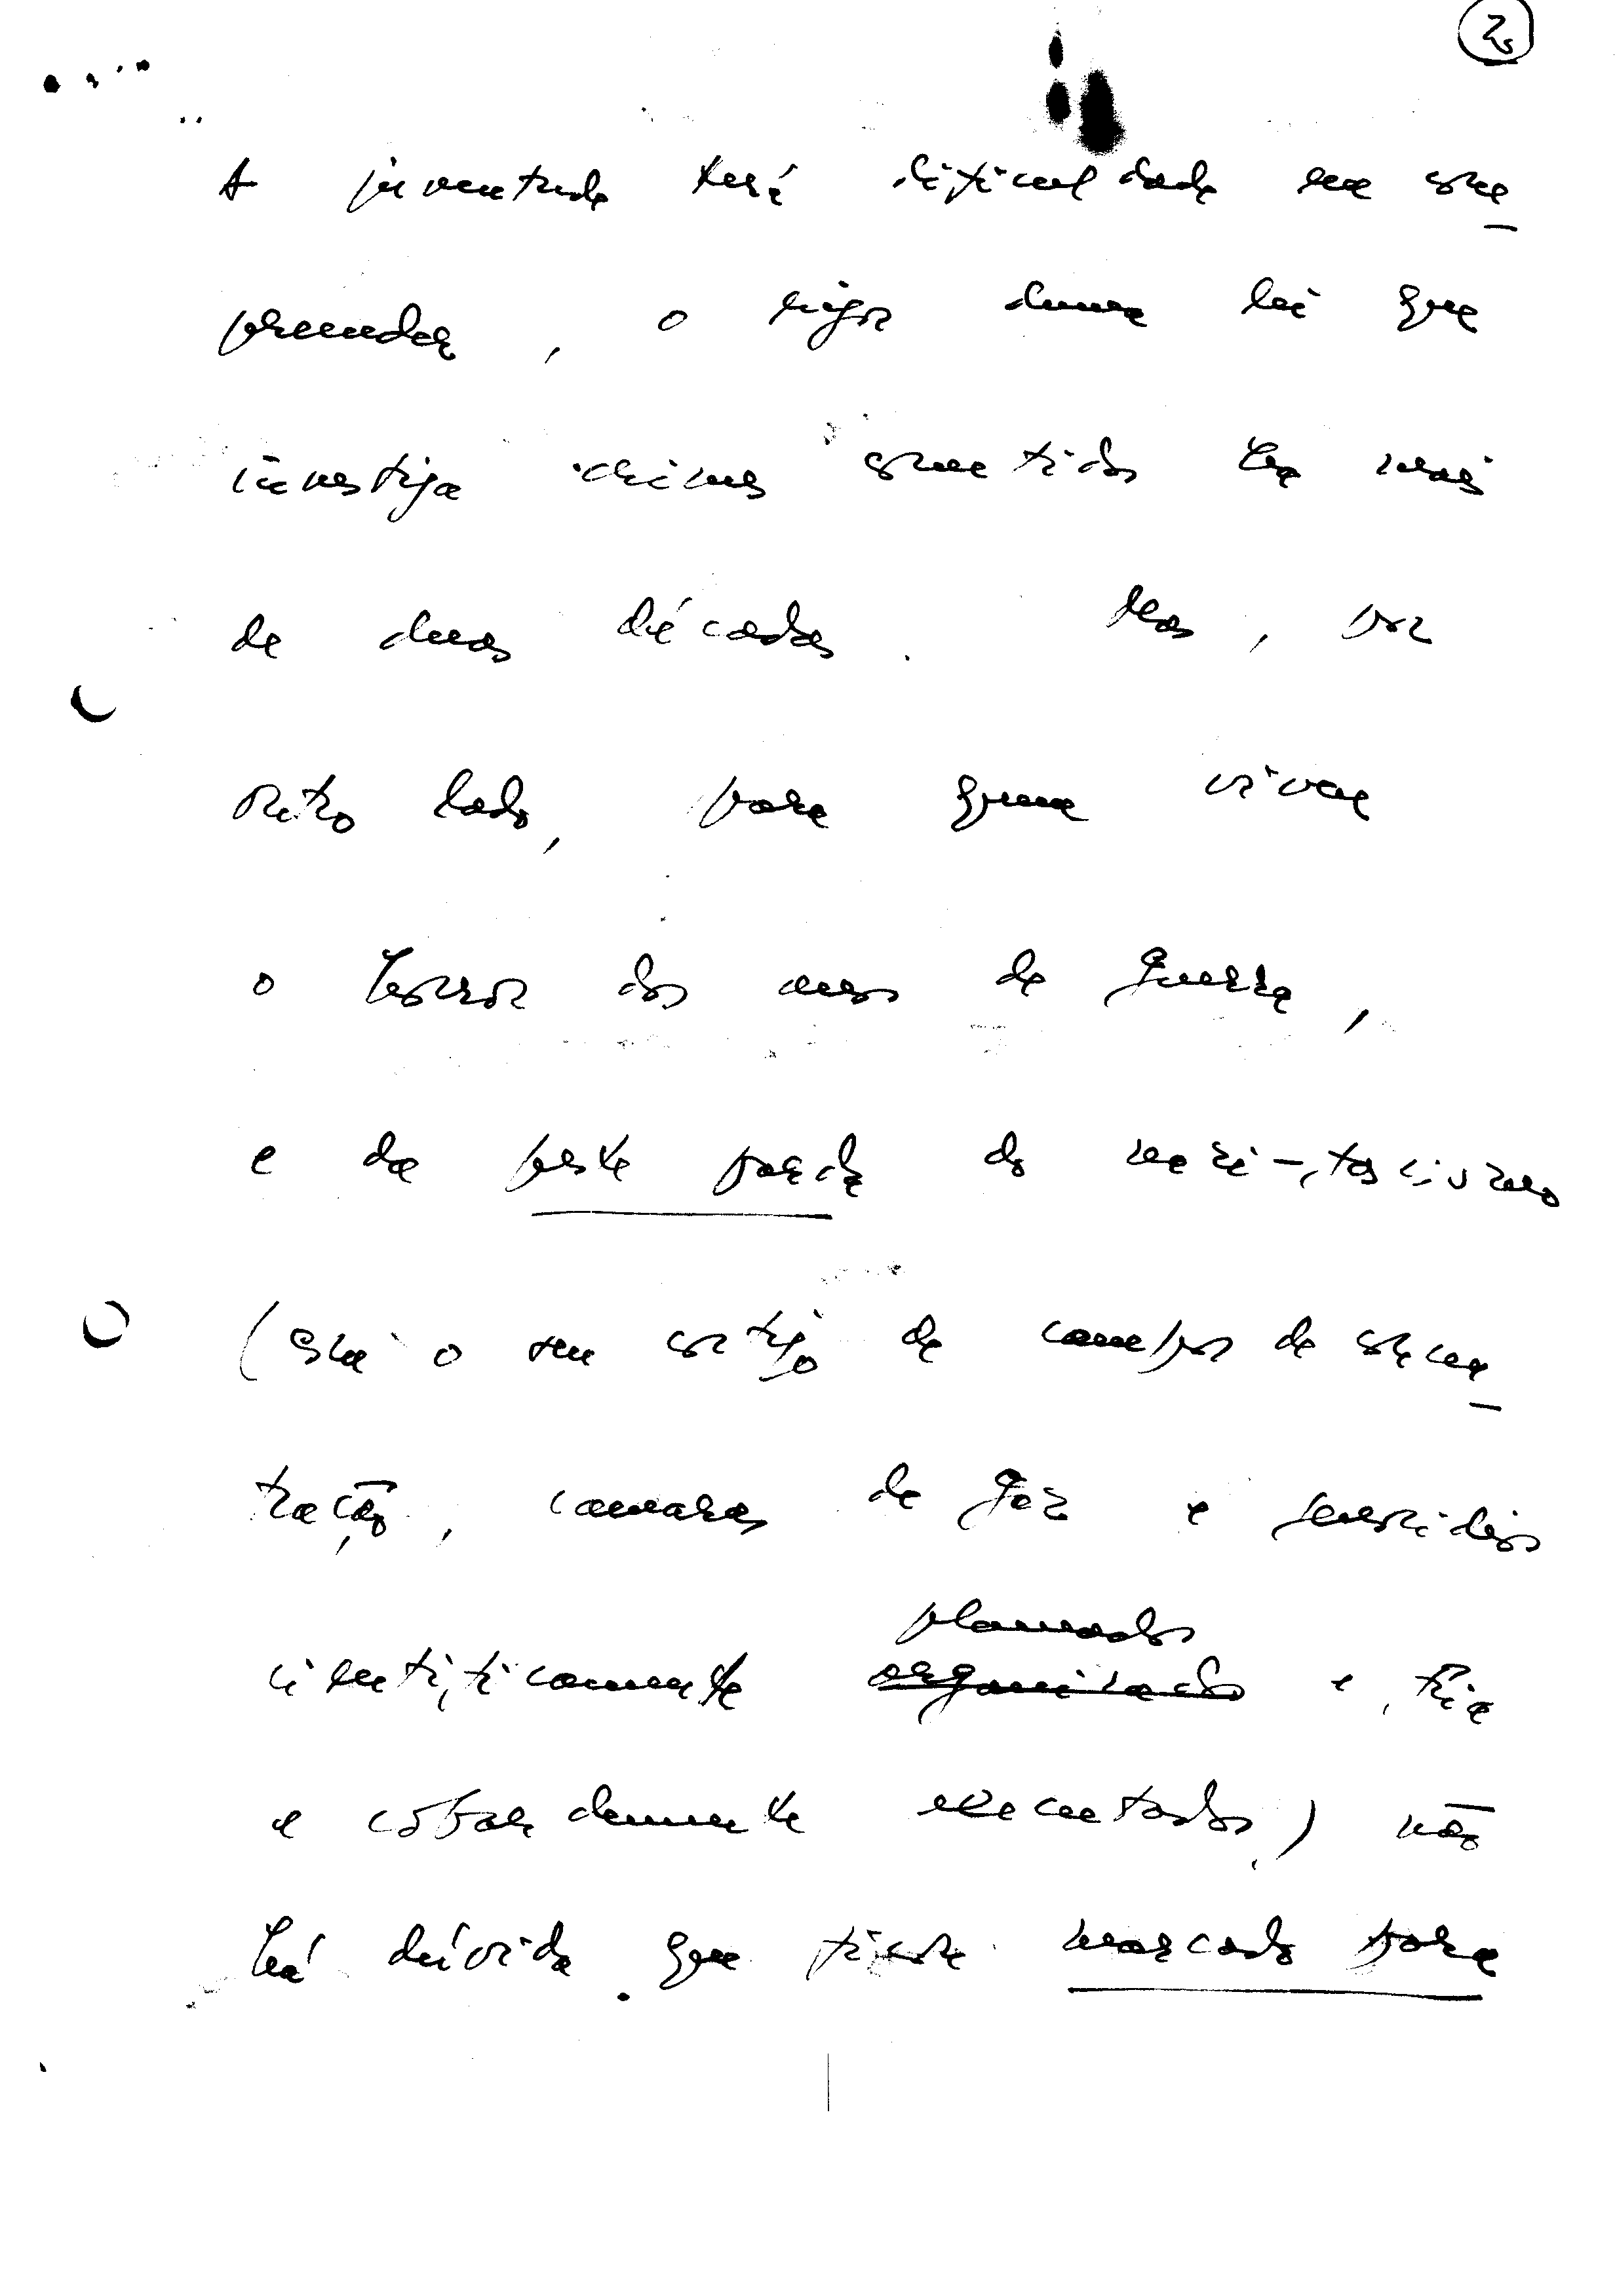 2
A juventude terá dificuldade em com-
preender, o rigor duma lei que
investiga crimes cometidos ha mais
de duas décadas. Mas, por
outro lado, para quem viveu
o terror dos anos de guerra,
e da peste parda do nazi-fascismo
(com o seu cortejo de campos de concen-
tração, camaras de gaz e genocidios
cientificamente organizado planeados e fria
e cobardemente executados) não
há dúvida que ficou marcado para